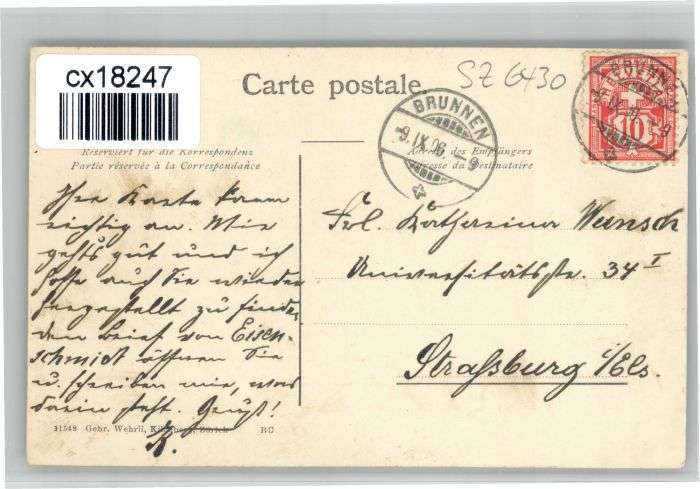 cx18247
Carte postale.
SZ 6430
BRUNNEN
9.IX.06.-9
BRUNNEN
9.IX.06.-9
10
Reserviert für die Korrespondenz
Partie réservée à la Correspondance
Adresse des Empfängers
Adresse du Destinataire
Ihre Karte kam
richtig an. Mir
geht's gut und ich
hoffe auch Sie wieder
hergestellt zu finden.
den Brief von Eisen-
schmidt öffnen Sie
u. schreiben mir, was
darin steht. Gruß!
K.
Frl. Katharina Wunsch
Universitätsstr. 34 I
Straßburg i/Els.
11548 Gebr. Wehrli, Kilchberg, Zürich